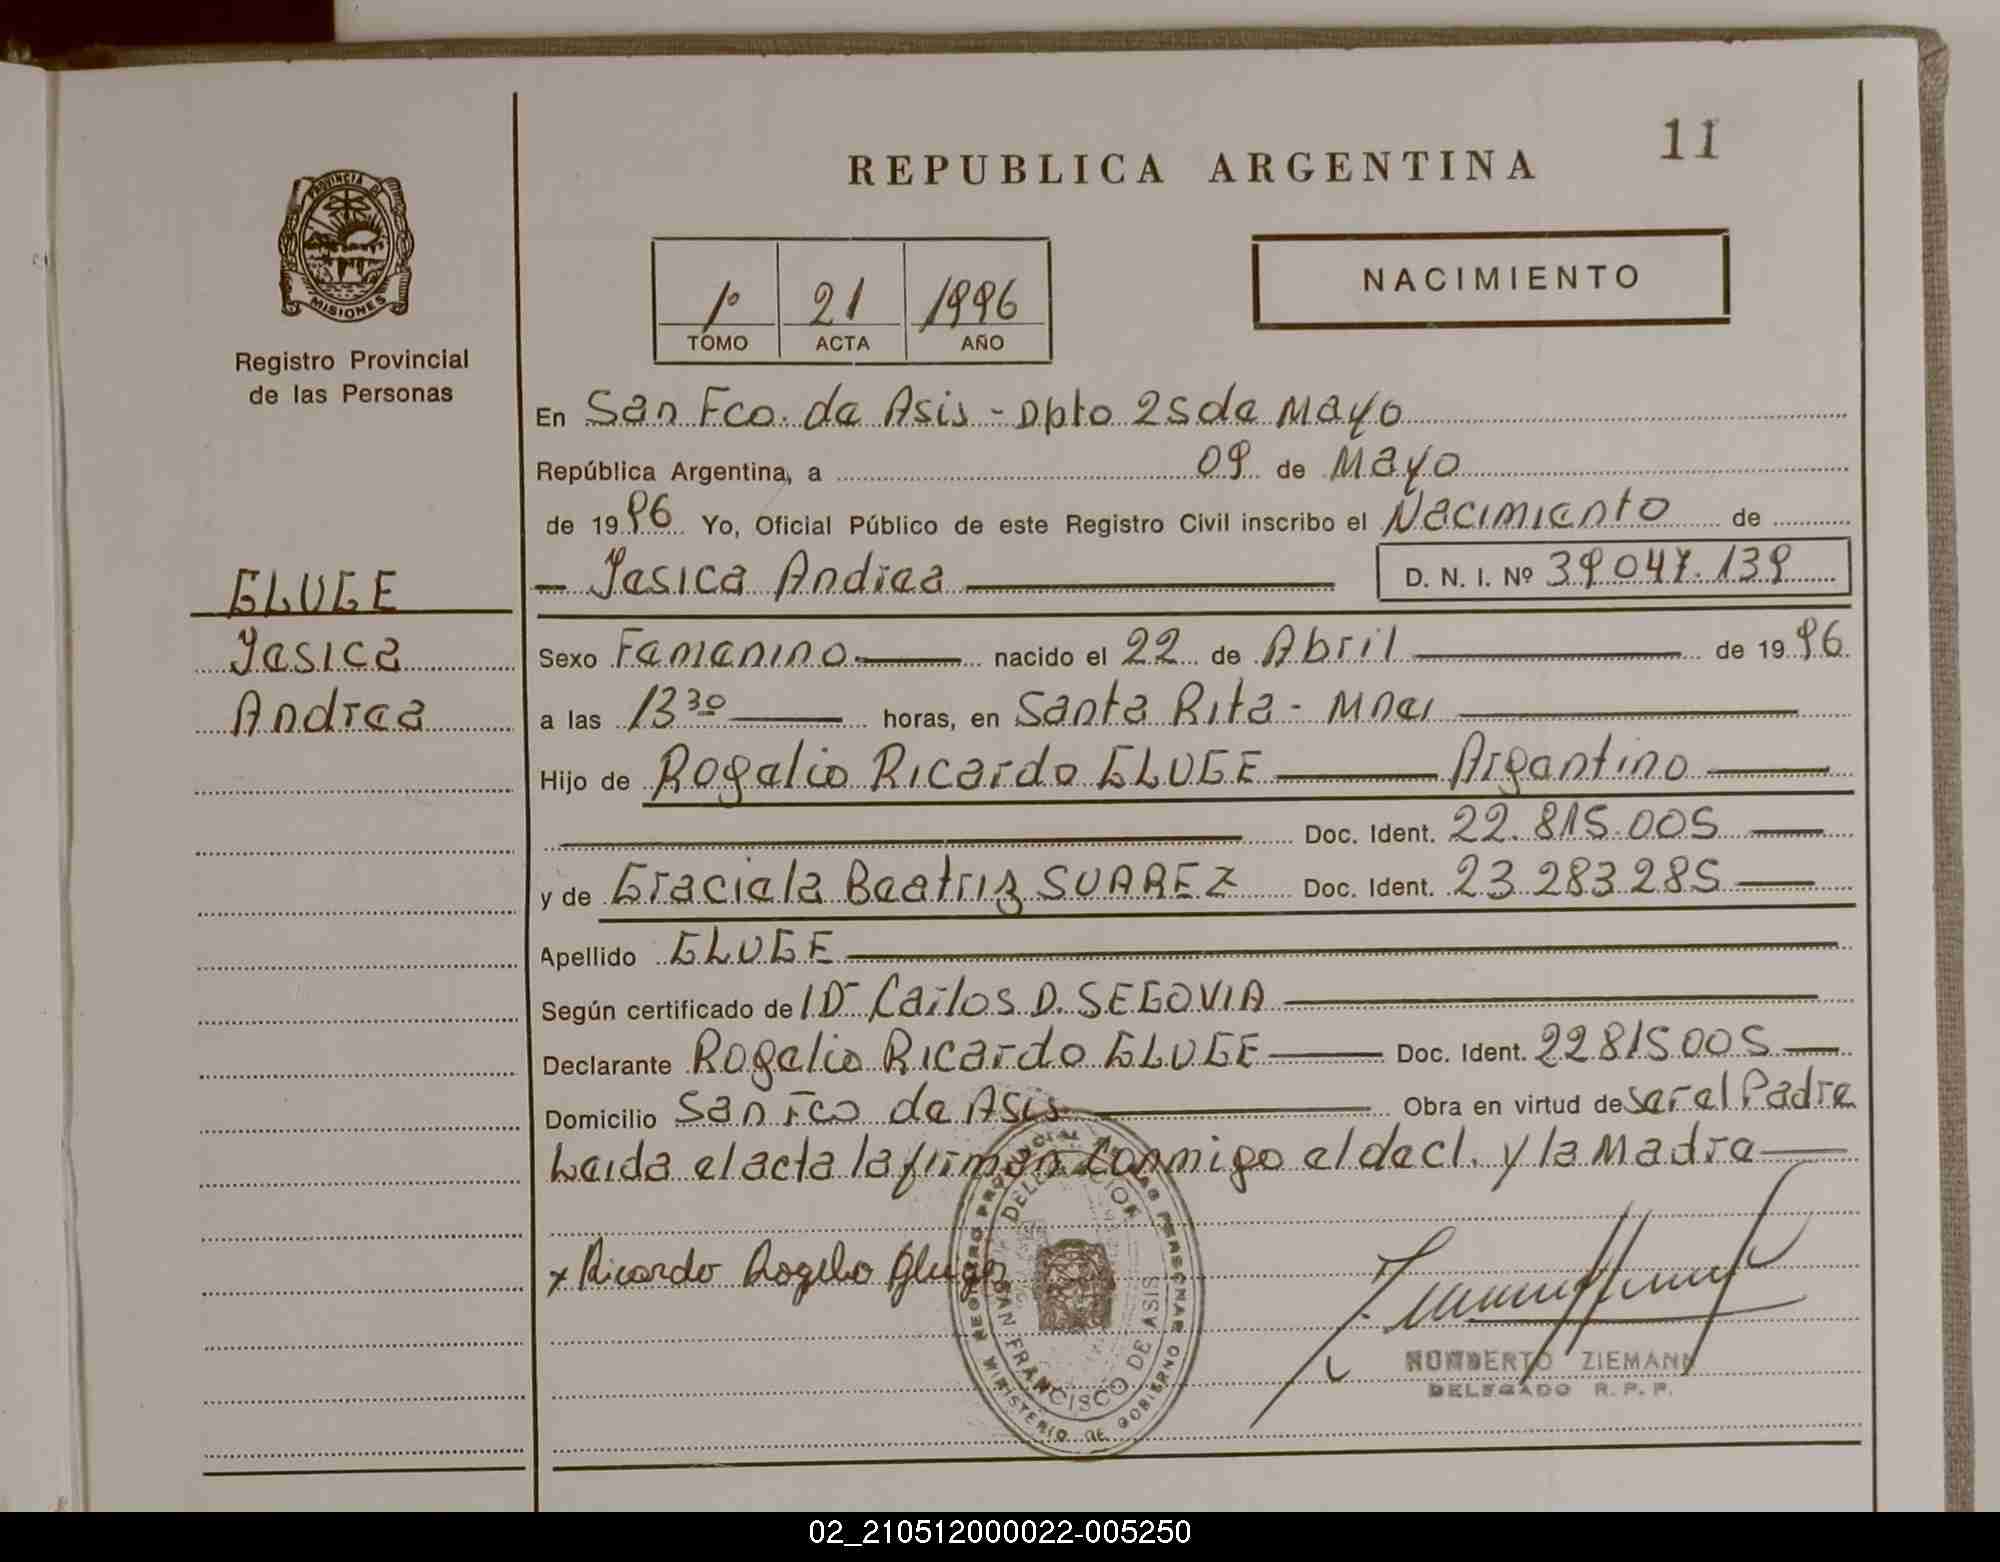 11
REPUBLICA ARGENTINA
PROVINCIA DE
MISIONES
Registro Provincial
de las Personas
1º 21 1996
TOMO ACTA AÑO
NACIMIENTO
En San Fco. de Asis - Dpto 25 de Mayo
República Argentina, a 09 de Mayo
de 1996 Yo, Oficial Público de este Registro Civil inscribo el Nacimiento de
Yesica Andrea D. N. I. Nº 39.047.139
GLUGE
Yesica
Andrea
Sexo Femenino nacido el 22 de Abril de 1996
a las 13 30 horas, en Santa Rita - Mnes
Hijo de Rogelio Ricardo GLUGE Argentino
Doc. Ident. 22.815.005
y de Graciela Beatriz SUAREZ Doc. Ident. 23.283.285
Apellido GLUGE
Según certificado de Dr Carlos D. SEGOVIA
Declarante Rogelio Ricardo GLUGE Doc. Ident. 22815005
Domicilio San Fco de Asis Obra en virtud de ser el Padre
Leida el acta la firman conmigo el decl. y la Madre
x Ricardo Rogelio Gluge
REGISTRO PROVINCIAL DE LAS PERSONAS
DELEGACION
SAN FRANCISCO DE ASIS
MINISTERIO DE GOBIERNO
NORBERTO ZIEMANN
DELEGADO R. P. P.
02_210512000022-005250